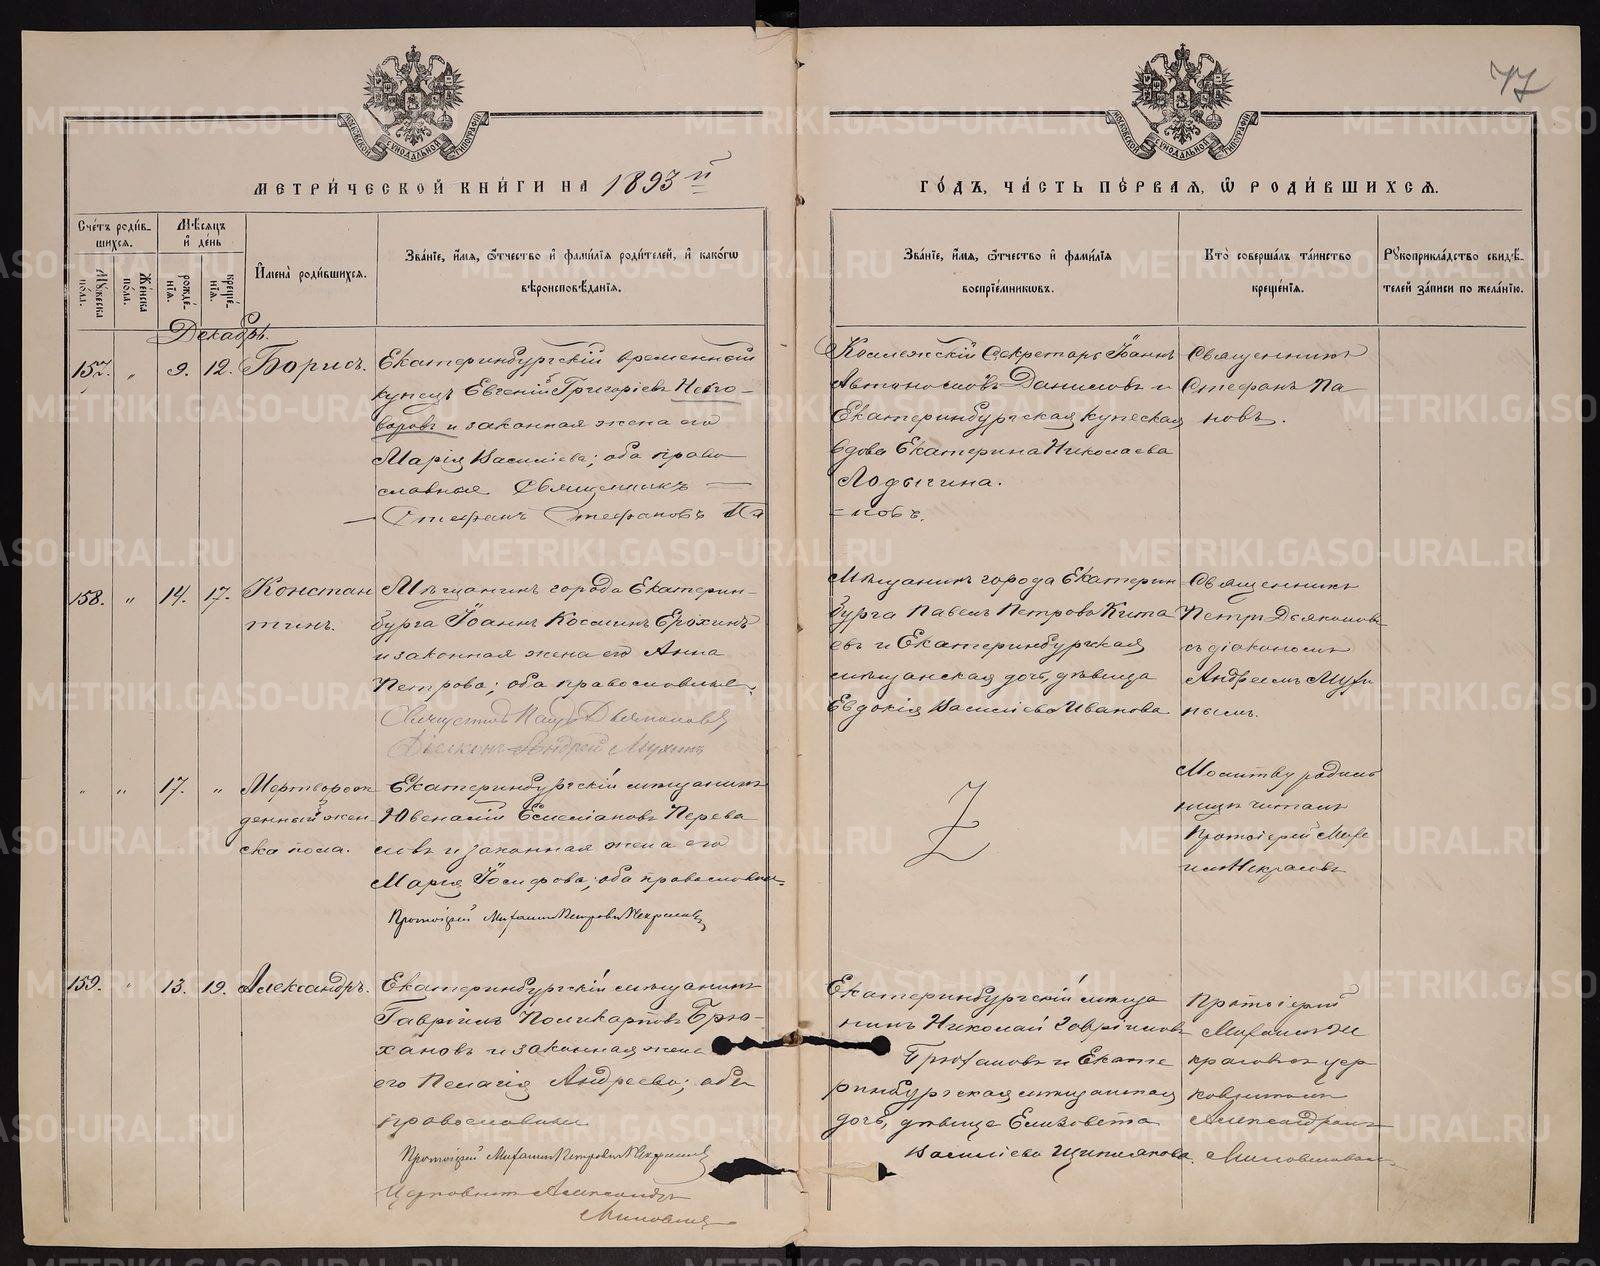 77
МЕТРИ́ЧЕСКОЙ КНИ́ГИ НА 1893 й
ГО́ДЪ, ЧА́СТЬ ПЕ́РВАЯ, Ѡ РОДИ́ВШИХСЯ.
Сче́тъ роди́в-
шихся.
Мѣ́сяцъ
и де́нь
Му́жеска по́ла.
Же́нска по́ла.
рожде́-
нїя.
креще́-
нїя.
Имена̀ роди́вшихся.
Зва́нїе, и́мя, ѻ́тчество и фами́лїя роди́телей, и како́гѡ
вѣроисповѣ́данїя.
Зва́нїе, и́мя, ѻ́тчество и фами́лїя
воспрїе́мникѡвъ.
Кто̀ соверша́лъ та́инство
креще́нїя.
Рукоприкла́дство свидѣ́-
телей за́писи по жела́нїю.
Декабрь.
157. " 9. 12. Борисъ.
Екатеринбургскій временный
купецъ Евгеній Григоріевъ Него-
воровъ и законная жена его
Марія Васильева; оба право
славная. Священникъ —
— Стефанъ Стефановъ Па
Коллежскій Секретарь Іоаннъ
Автономовъ Даниловъ и
Екатеринбургская купеская
вдова Екатерина Николаева
Лодыгина.
= повъ.
Священникъ
Стефанъ Па
повъ.
158. " 14. 17. Констан
тинъ.
Мѣщанинъ города Екатерин-
бурга Іоаннъ Космин Ерохинъ
и законная жена его Анна
Петрова; оба православные.
Священникъ Петръ Дьяконовъ
Діаконъ Андрей Мухинъ
Мѣщанинъ города Екатерин
бурга Павелъ Петровъ Кита
евъ и Екатеринбургская
мѣщанская дочь, дѣвица
Евдокія Васильева Иванова
Священникъ
Петръ Дьяконовъ
съ діакономъ
Андреемъ Мухи
нымъ.
" " 17. " Мертворож
денный жен-
ска пола.
Екатеринбургскій мѣщанинъ
Ювеналій Емеліановъ Перева
ловъ и законная жена его
Марія Іосифова; оба православные
Протоіерей Михаилъ Петровъ Некрасовъ
Z
Молитву родиль
ницѣ читалъ
Протоіерей Миха
илъ Некрасовъ
159. " 13. 19. Александръ.
Екатеринбургскій мѣщанинъ
Гавріилъ Поликарповъ Брю-
хановъ и законная жена
его Пелагія Андреева; оба
православные
Протоіерей Михаилъ Петровъ Некрасовъ
Церковникъ Александръ
Миловидовъ
Екатеринбургскій мѣща
нинъ Николай Гавріиловъ
Брюхановъ и Екате
ринбургская мѣщанская
дочь, дѣвица Елизавета
Васильева Щипаннова.
Протоіерей
Михаилъ Не
красовъ съ цер
ковникомъ
Александромъ